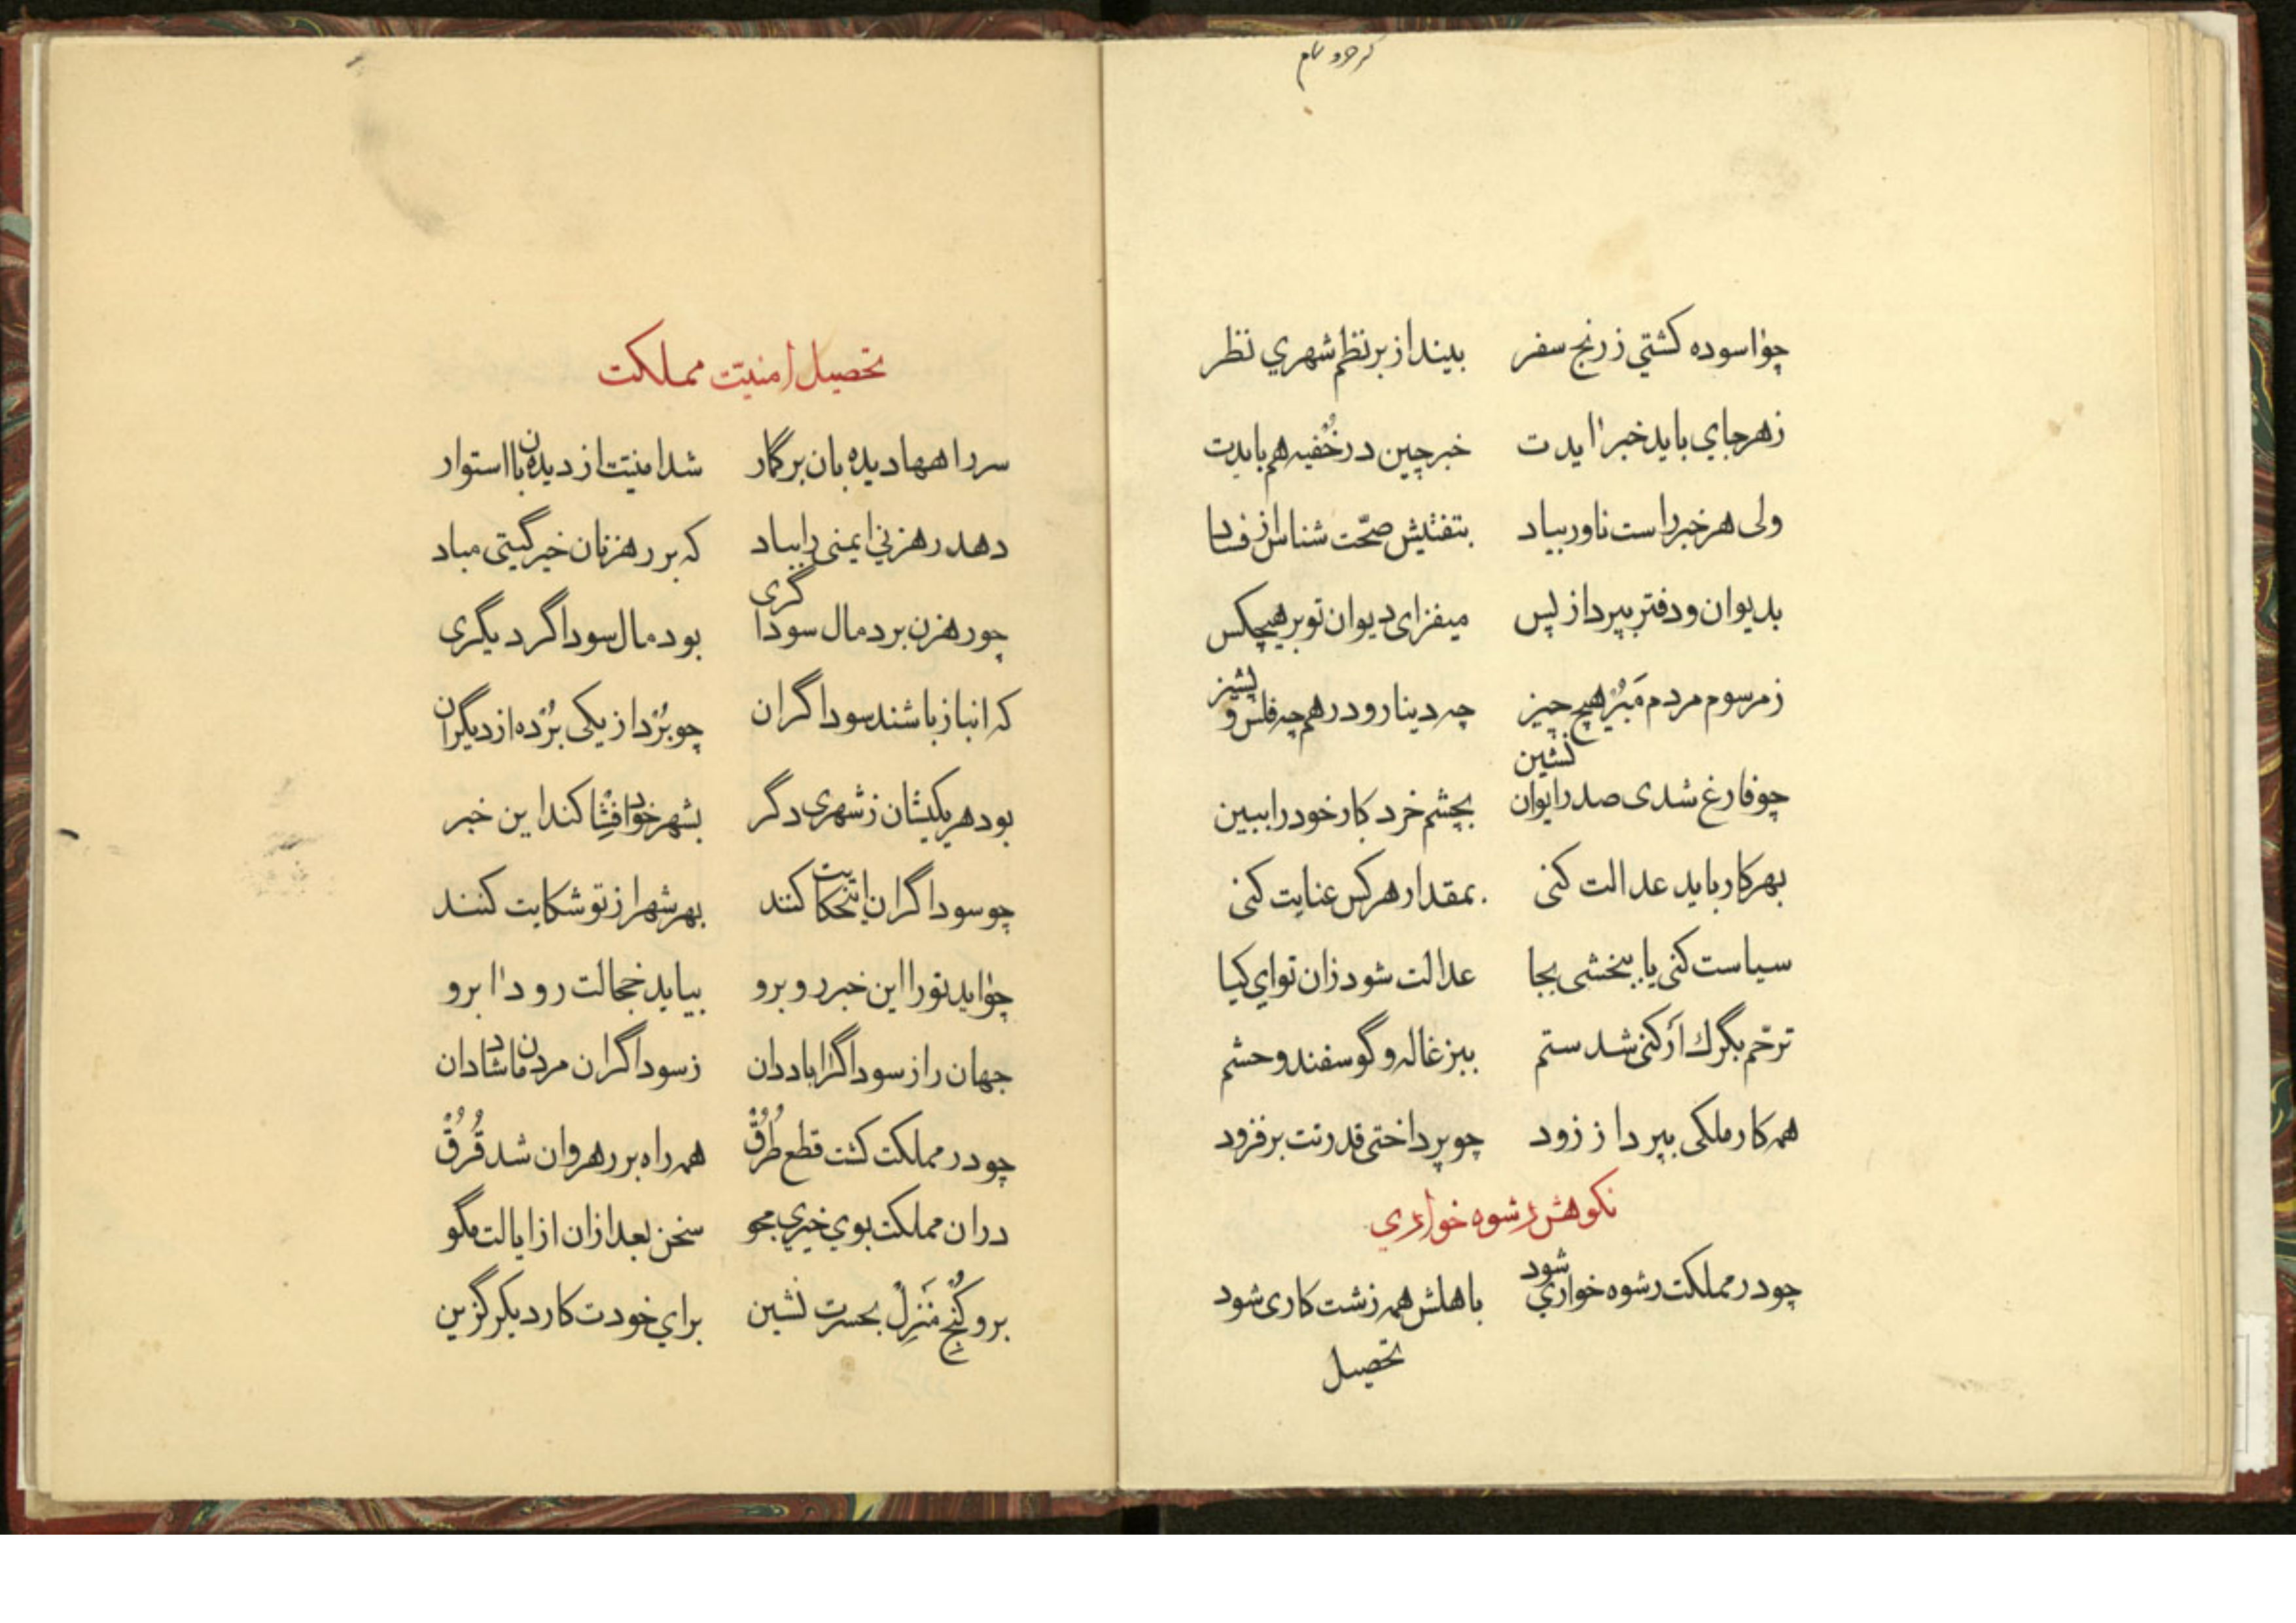 چو اسوده كشتي ز رنج سفر بینداز بر نظم شهري نظر
ز هر جاي باید خبر ایدت خبرچین در خُفیه هم بایدت
ولی هر خبر راست ناور بیاد بتفتیش صحّت شناس از فساد
بدیوان و دفتر بپرداز پس میفزای دیوان تو بر هیچکس
ز مرسوم مردم مَبُر هیچ چیز چه دینار و درهم چه فلس و پشیز
چو فارغ شدی صدر ایوان نشین بچشم خرد کار خود را ببین
بهر کار باید عدالت کنی بمقدار هر کس عنایت کنی
سیاست کنی یا ببخشی بجا عدالت شود زان تو اي کیا
ترحّم بگرك ار کنی شد ستم ببزغاله و گوسفند و حشم
همه کار ملکی بپرداز زود چو پرداختی قدرتت بر فزود
نکوهش رشوه خواري
چو در مملکت رشوه خواري شود باهلش همه زشت کاری شود
تحصیل
تحصیل امنیّت مملکت
سر راهها دیده بان بر گمار شد امنیّت از دیده بان استوار
دهد رهزني ایمنی را بباد که بر رهزنان خیر گیتی مباد
چو رهزن برد مال سوداگری بود مال سوداگر دیگری
که انباز باشند سوداگران چو بُرد از یکی بُرده از دیگران
بود هر یکیشان ز شهری دگر بشهر خود افشا کند این خبر
چو سوداگران زان حکایت کنند بهر شهر از تو شکایت کنند
چو اید تو را این خبر روبرو بیاید خجالت رود ابرو
جهان را ز سوداگر اباد دان ز سوداگران مردمان شاد دان
چو در مملکت گشت قطع طُرُقْ همه راه بر رهروان شد قُرُقْ
در ان مملکت بوي خیري مجو سخن بعد از ان از ایالت مگو
برو کُنْجِ مَنزِلْ بحسرت نشین براي خودت کار دیگر گزین